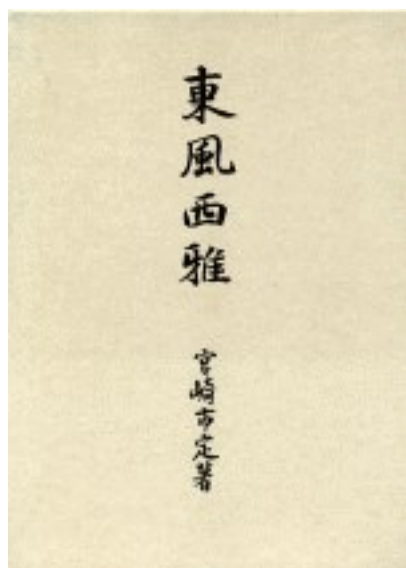 東風西雅
宮崎市定著